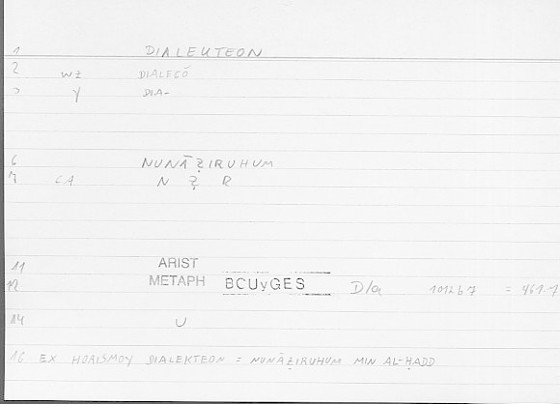 1 DIALEUTEON
2 WZ DIALEGŌ
3 Y DIA-
6 NUNĀẒIRUHUM
7 CA N Ẓ R
11 ARIST
12 METAPH BCUyGES D/a 1012b7 = 461.7
14 U
16 EX HORISMOY DIALEKTEON = NUNĀẒIRUHUM MIN AL-ḤADD